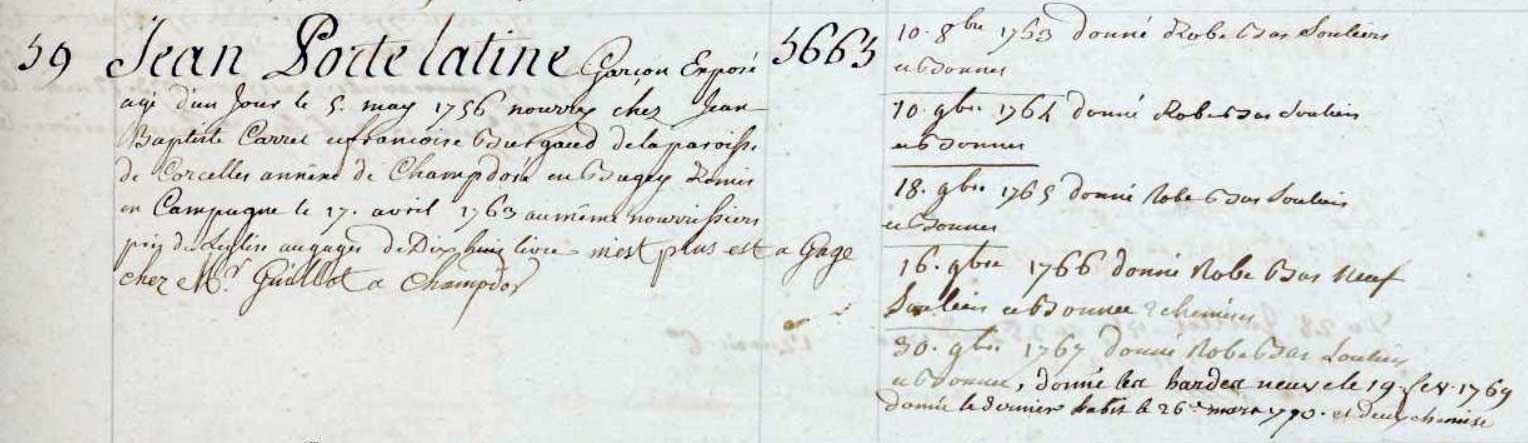 59 Jean Porte latine Garçon Exposé
agé d'un Jour le 5. may 1756 nourry chez Jean
Baptiste Carret et francoise Burgaud de la paroisse
de Corcelles annexe de Champdor en Bugey Remis
en Campagne le 17. avril 1763 au même nourrissiers
prix de Leglise au gages de Dix huit livres n'est plus est a Gage
chez Mr Guillot a Champdor
5663
10. 8bre 1763 donné Robe Bas Souliers
et Bonnet
10. 9bre 1764 donné Robe Bas Souliers
et Bonnet
18. 9bre 1765 donné Robe Bas Souliers
et Bonnet
16. 9bre 1766 donné Robe Bas Neuf
Souliers et Bonnet 2 chemises
30. 9bre 1767 donné Robe Bas Souliers
et Bonnet, donné les hardes neuve le 19. fev. 1769
donné le dernier habit le 26e mars 1770. et deux chemise